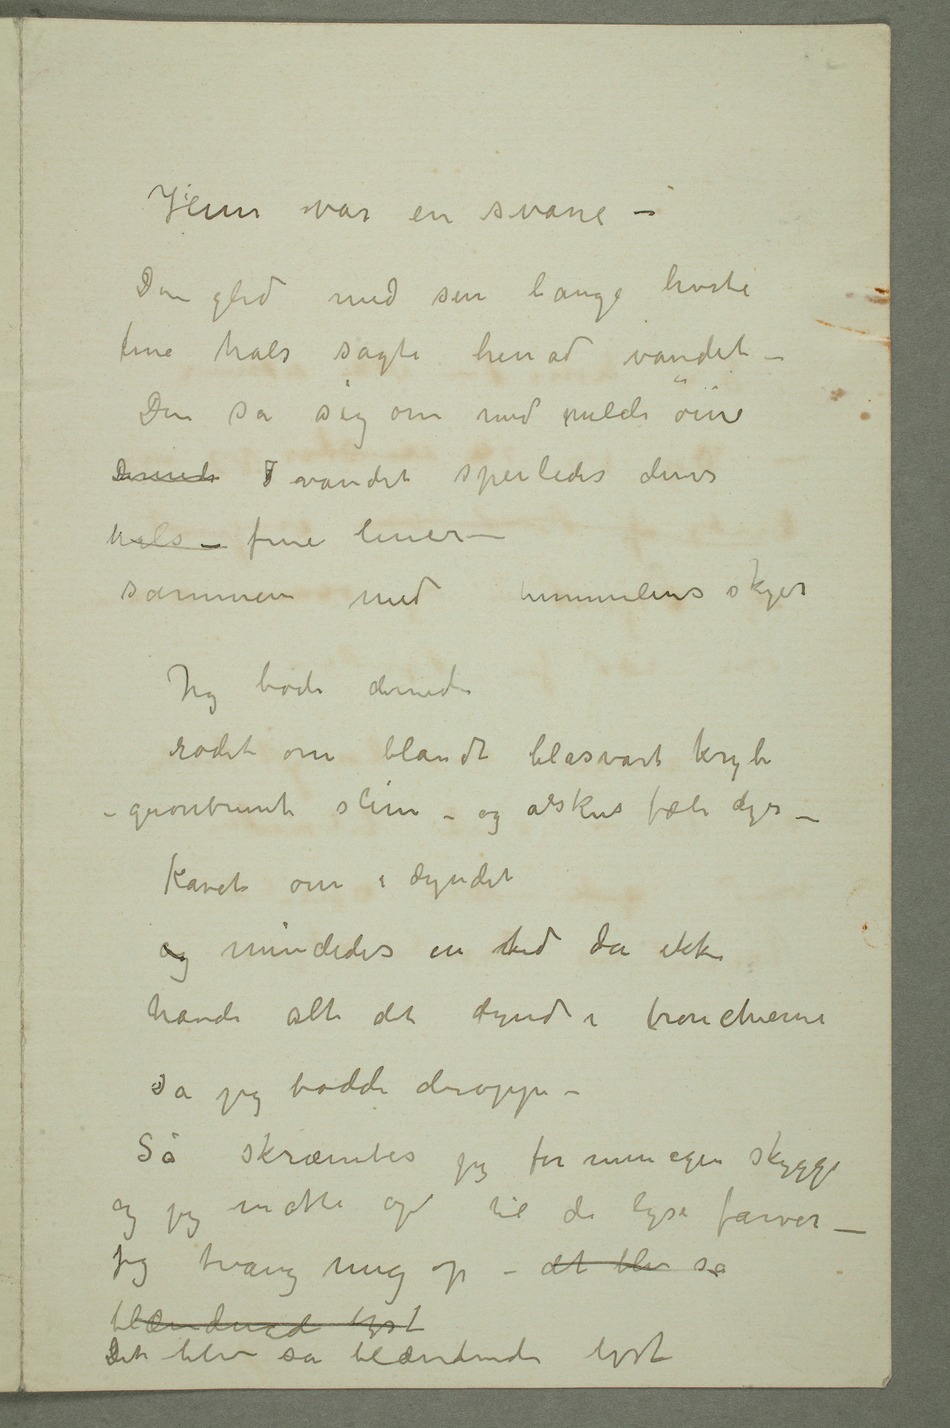 Hun var en svane –
Den gled med sin lange hvite
fine hals sagte henad vandet –
Den sa sig om med milde öine
Dernede I vandet speiledes dens
hals – fine linier –
sammen med himmelens skyer
Jeg bode dernede
rodet om blandt blasvart kryb
– grönbrunt slim – og alskens fæle dyr –
Kavet om i dyndet
og mindedes en tid da ikke
havde alt det dynd i bronchierne
Da jeg bodde deroppe –
Så skræmtes jeg for min egen skygge
og jeg matte op til de lyse farver –
Jeg tvang mig op – det blev sa
blændende lyst
Det blev sa blændende lyst